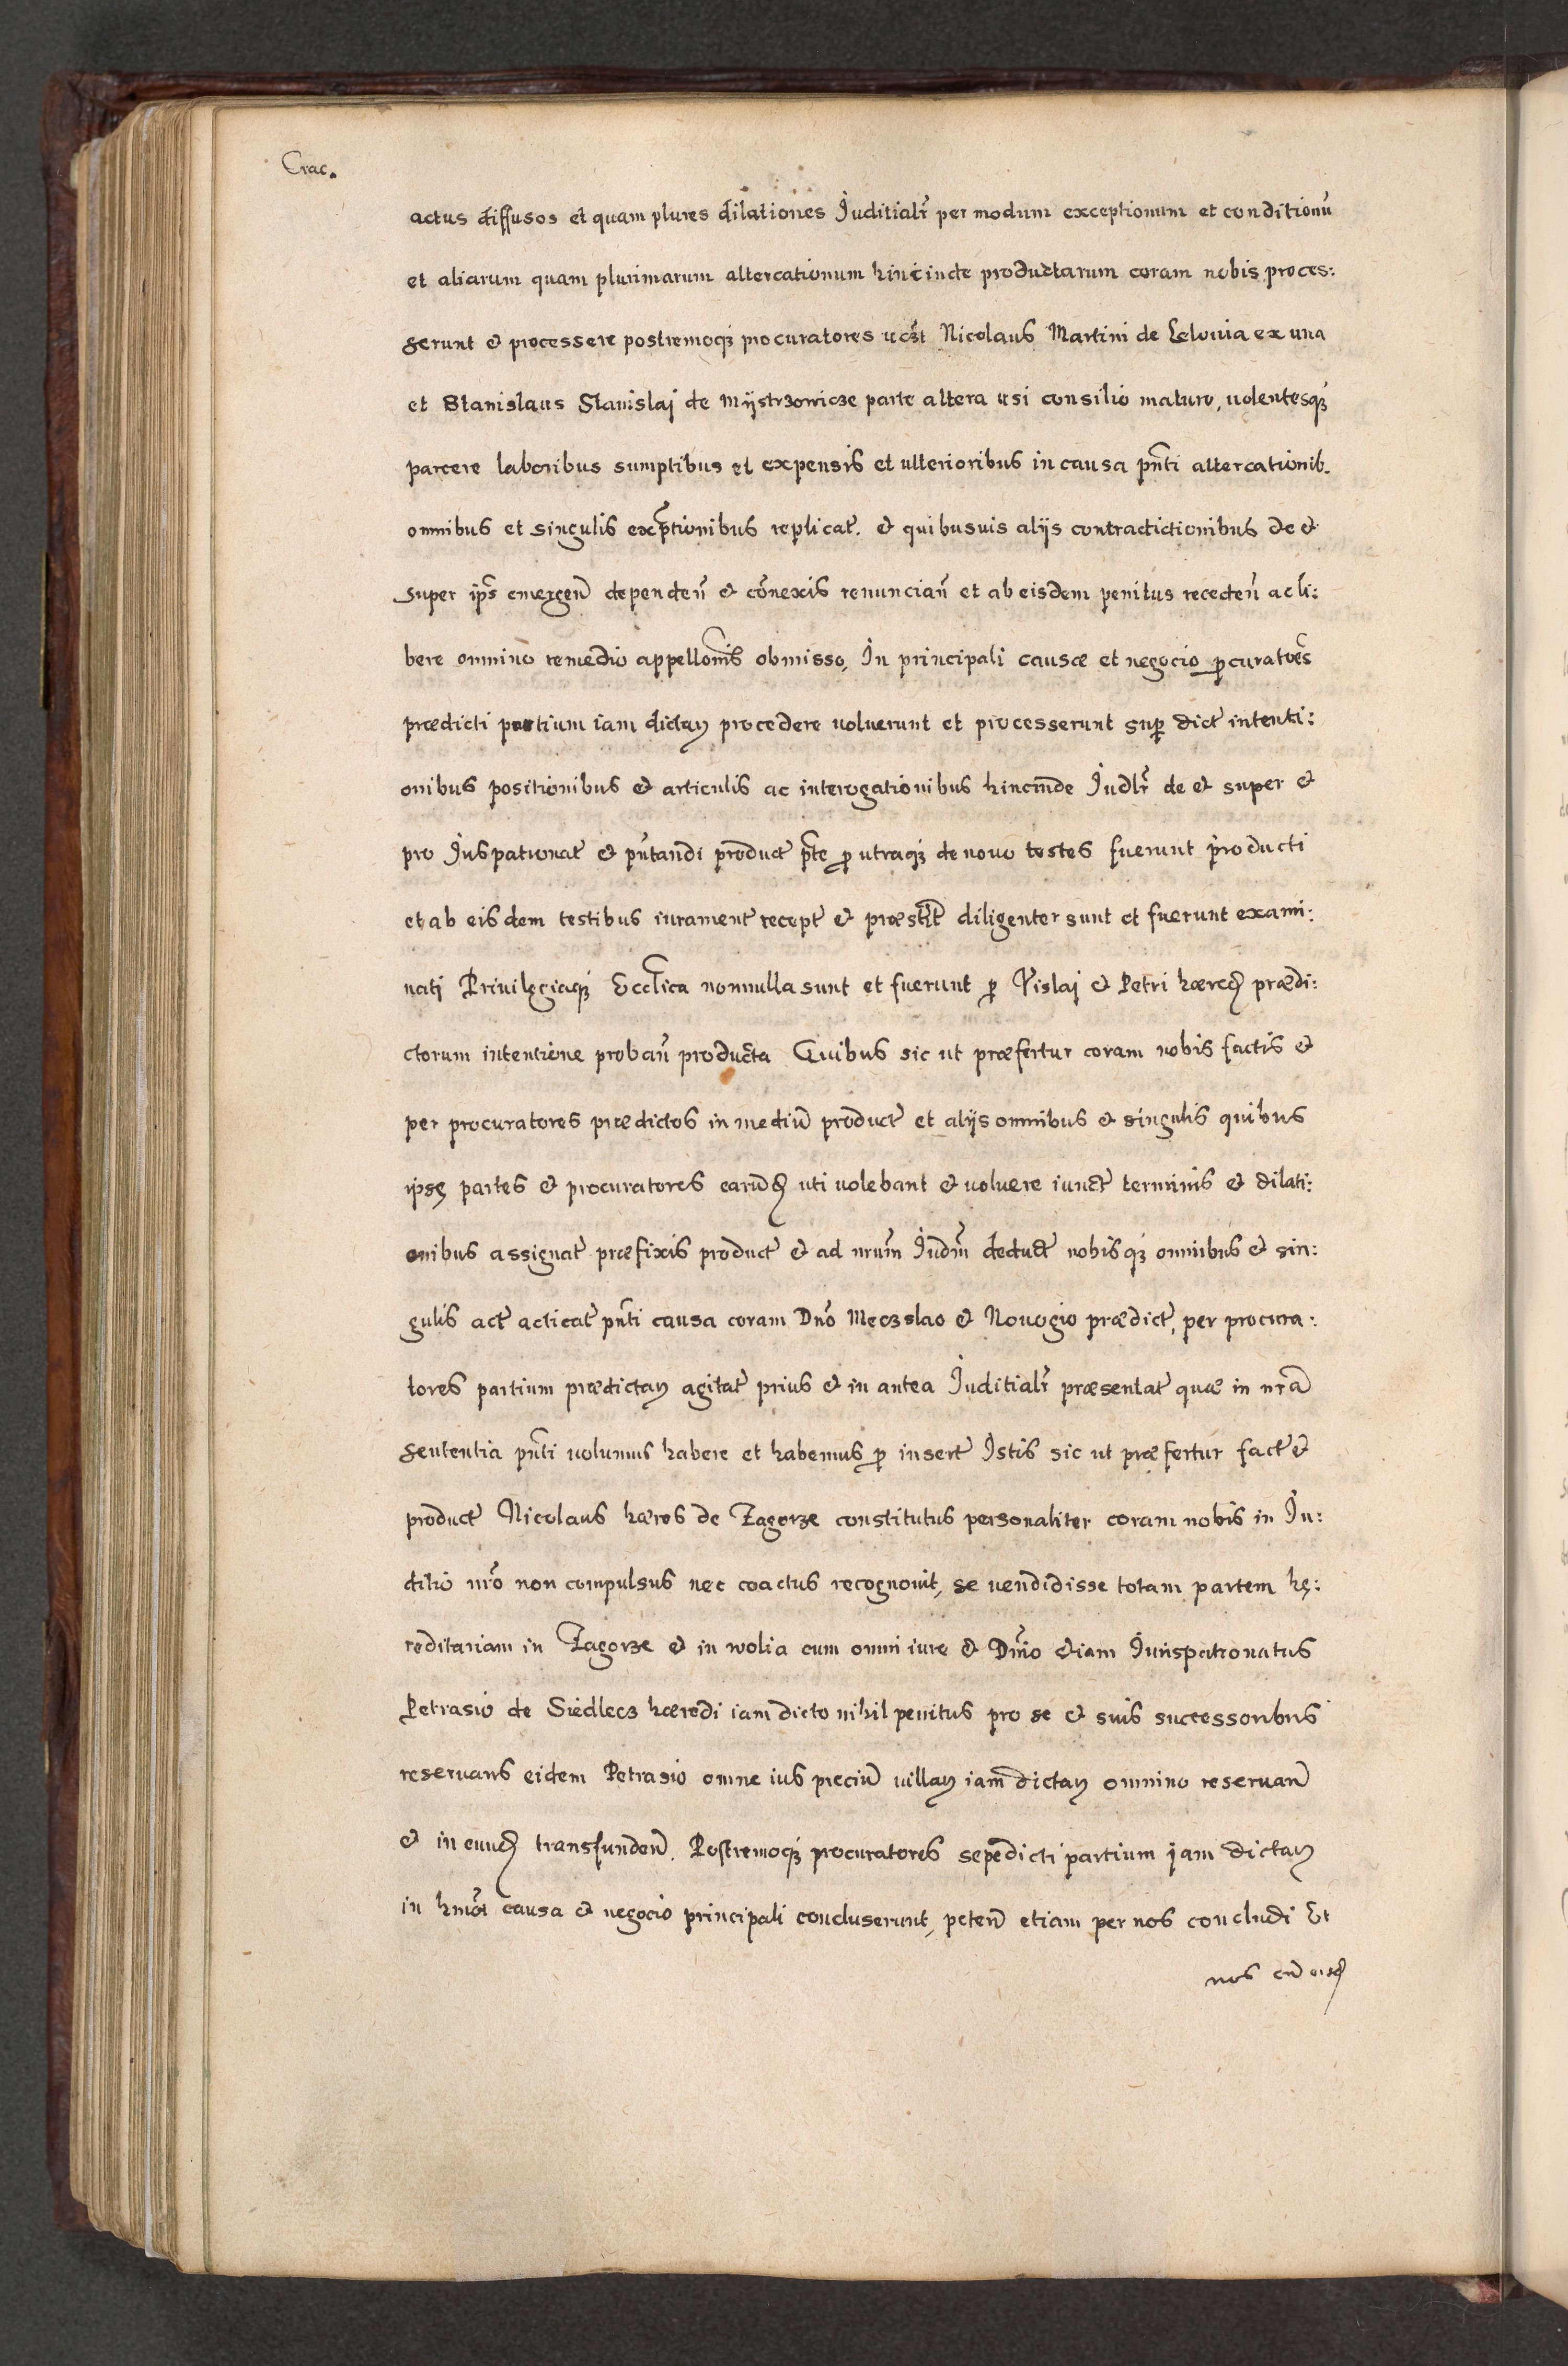 Crac.
actus diffusos et quam plures dilationes Juditialr̃ per modum exceptionum et conditionũ
et aliarum quam plurimarum altercationum hincinde productarum coram nobis proces:
serunt & processere postremoq₃ procuratores uc₃t Nicolaus Martini de Lelovia ex una
et Stanislaus Stanislaj de Mÿstrzowicze parte altera usi consilio maturo, uolentesq₃
parcere laboribus sumptibus et expensis et ulterioribus in causa pñti altercationib.
omnibus et singulis excptionibus replicat̃. & quibusuis alijs contradictionibus de &
super ip̃s emergeñ dependeñ & cõnexis renunciañ et ab eisdem penitus recedeñ ac li:
bere omnino remedio appellõnis obmisso, In principali causæ et negocio ꝓcuratoẽs
prædicti partium iam dictaꝝ procedere voluerunt et processerunt suꝑ dict̃ intenti:
onibus positionibus & articulis ac interogationibus hincinde Judlr̃ de & super &
pro Juspatronat̃ & pñtandi product̃ pr̃te ꝑ utraq₃ de novo testes fuerunt producti
et ab eisdem testibus iurament̃ recept̃ & præstit̃ diligenter sunt et fuerunt exami:
natj Privilegiaq₃ Eccl̃ica nonnulla sunt et fuerunt ꝑ Vislaj & Petri hæred̃ prædi:
ctorum intentione probañ producta Quibus sic ut præfertur coram nobis factis &
per procuratores prædictos in mediũ product̃ et alijs omnibus & singulis quibus
ipsę partes & procuratores earũd̃ uti volebant & voluere iunct̃ terminis & dilati:
onibus assignat̃ præfixis product̃ & ad nrũm Judm̃ deduct̃ nobisq₃ omnibus & sin:
gulis act̃ acticat̃ pñti causa coram Dnõ Meczslao & Novogio prædict̃, per procura:
tores partium prædictaꝝ agitat̃ prius & in antea Juditialr̃ præsentat̃ quæ in nrã
sententia pñti volumus habere et habemus ꝓ insert̃ Istis sic ut præfertur fact̃ &
product̃ Nicolaus hæres de Zagorze constitutus personaliter coram nobis in Ju:
ditio nrõ non compulsus nec coactus recognovit, se vendidisse totam partem hę:
reditariam in Zagorze & in wolia cum omni iure & Dmĩo etiam Jurispatronatus
Petrasio de Siedlecz hæredi iam dicto nihil penitus pro se & suis successoribus
reservans eidem Petrasio omne ius preciũ villaꝝ iam dictaꝝ omnino reservañ
& in eund̃ transfundeñ. Postremoq₃ procuratores sepedicti partium jam dictaꝝ
in hmõi causa & negocio principali concluserunt, peteñ etiam per nos concludi Et
nos cũ eisd̃